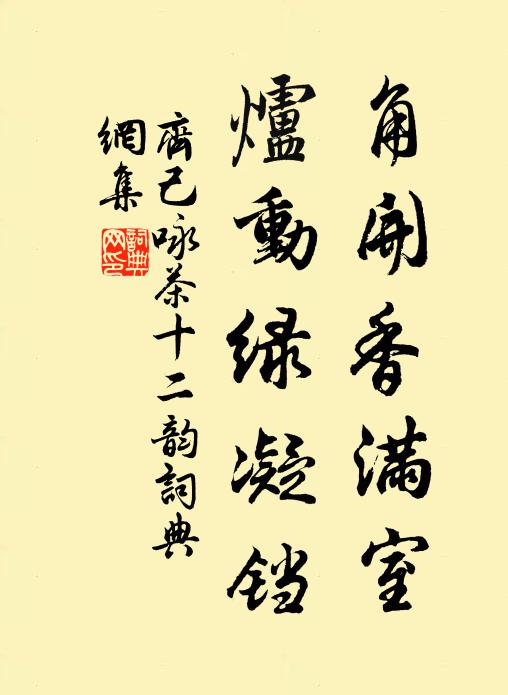 角開香滿室
爐動緑凝铛
齊己咏茶十二韵詞典
網集
詞典
网印